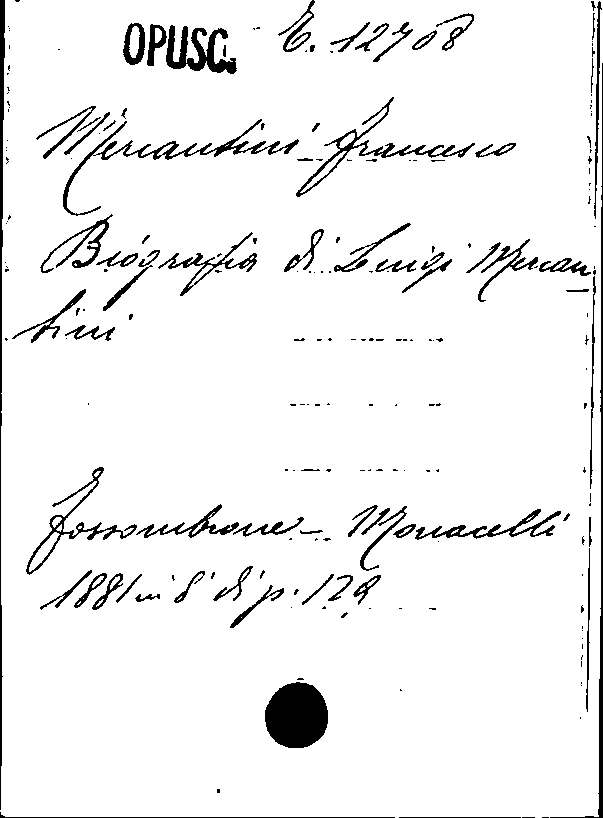 OPUSC. E. 12708
Mercantini Francesco
Biografia di Luigi Mercan-
tini
Fossombrone - Monacelli
1881 in 8° di p. 129